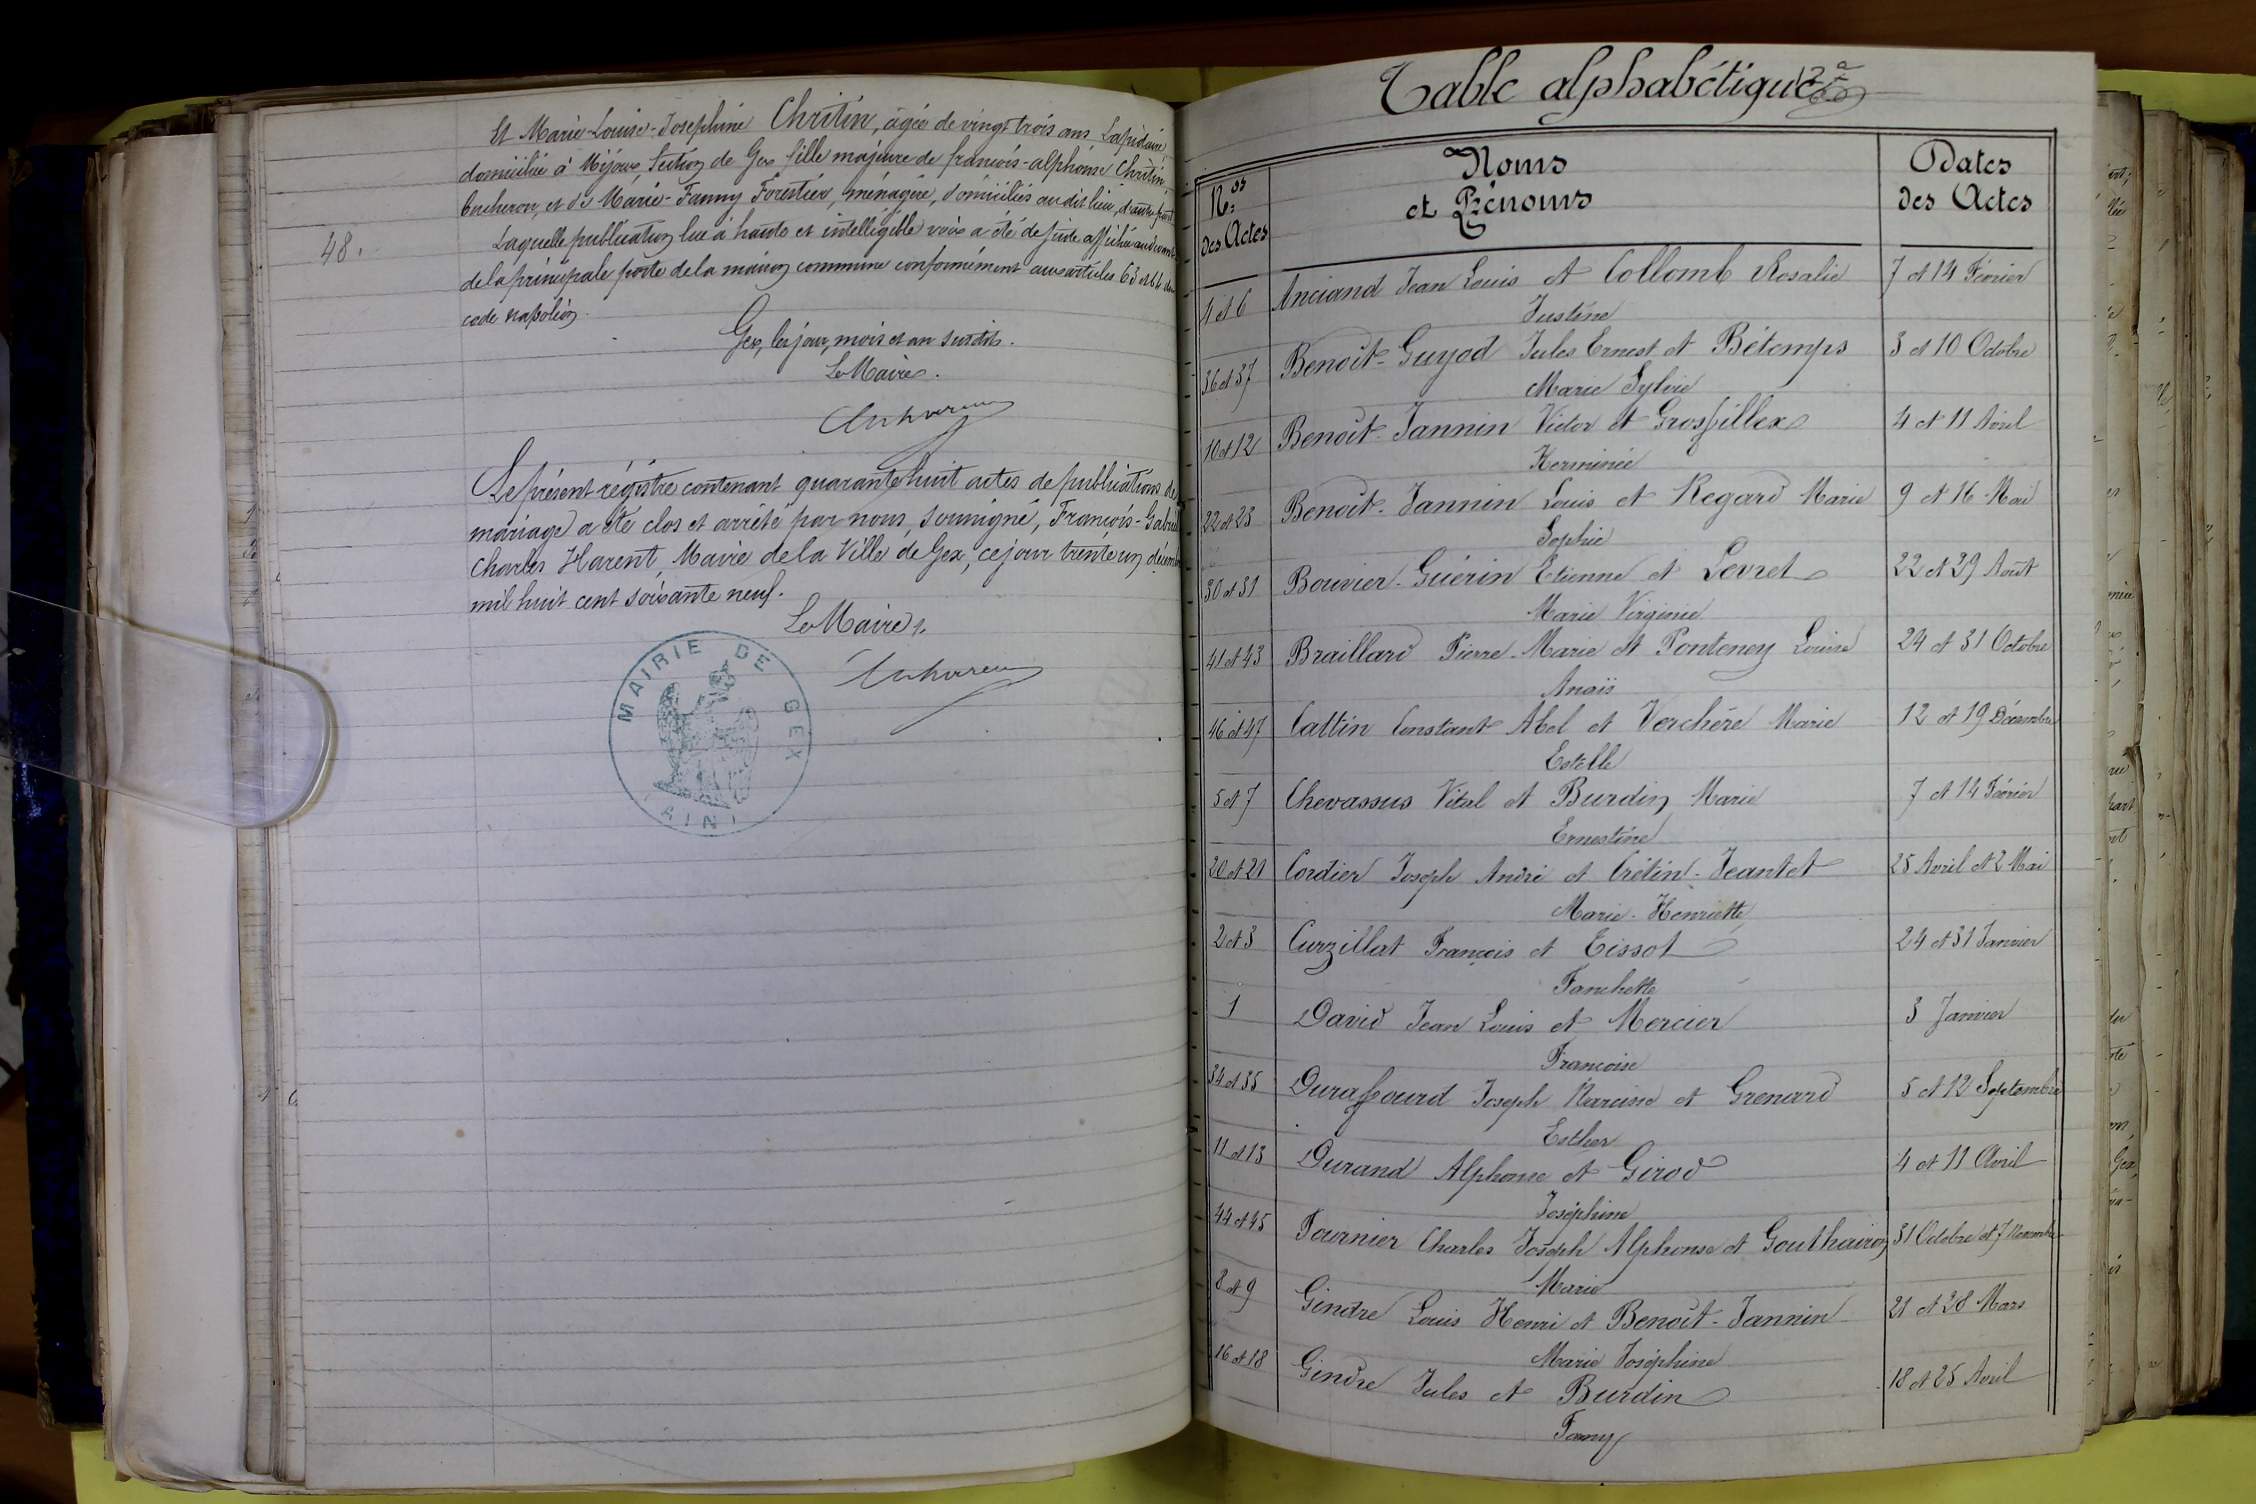 Et Marie-Louise-Joséphine Chritin, agée de vingt trois ans Lapidaire
domiciliée à Mijoux Section de Gex fille majeure de françois-alphonse Chritin,
bucheron, et de Marie-Fanny Forestier, ménagère, domiciliés au dit lieu, d'autre part.
48.
Laquelle publication lue à haute et intelligible voix a été de suite affichée au devant
de la principale porte de la maison commune conformément aux articles 63 et 64 du
code napoléon.
Gex, les jour, mois et an susdits.
Le Maire.
Le présent régistre contenant quarante huit actes de publications de
mariage a été clos et arrêté par nous, soussigné, François-Gabriel
Charles Harent, Maire de la Ville de Gex, ce jour trente un décembre
mil huit cent soixante neuf.
Le Maire,
MAIRIE DE GEX
AIN
Table alphabétique
Nos des Actes
Noms et Prénoms
Dates des Actes
4 et 6 Anciand Jean Louis et Collomb Rosalie 7 et 14 Février
Justine
36 et 37 Benoît-Guyod Jules Ernest et Bétemps 3 et 10 Octobre
Marie Sylvie
10 et 12 Benoît-Jannin Victor et Grosfillex 4 et 11 Avril
Herminée
22 et 23 Benoît-Jannin Louis et Regard Marie 9 et 16 Mai
Sophie
30 et 31 Bouvier-Guérin Etienne et Levret 22 et 29 Août
Marie Virginie
41 et 43 Braillard Pierre-Marie et Ponteney Louise 24 et 31 Octobre
Anaïs
46 et 47 Cattin Constant Abel et Verchère Marie 12 et 19 Décembre
Estelle
5 et 7 Chevassus Vital et Burdin Marie 7 et 14 Février
Ernestine
20 et 21 Cordier Joseph André et Crétin-Jeantet 25 Avril et 2 Mai
Marie-Henriette
2 et 3 Curzillat François et Tissot 24 et 31 Janvier
Fanchette
1 David Jean Louis et Mercier 3 Janvier
Françoise
34 et 35 Duraffourd Joseph Narcisse et Grenard 5 et 12 Septembre
Esther
11 et 13 Durand Alphonse et Girod 4 et 11 Avril
Joséphine
44 et 45 Fournier Charles Joseph Alphonse et Gouthairon 31 Octobre et 7 Novembre
Marie
8 et 9 Gindre Louis Henri et Benoît-Jannin 21 et 28 Mars
Marie Joséphine
16 et 18 Gindre Jules et Burdin 18 et 25 Avril
Fany